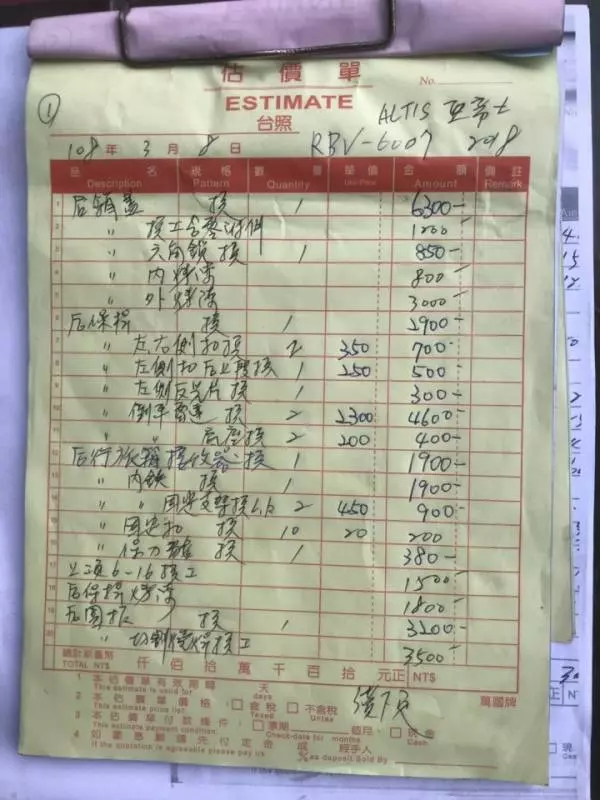 估價單
ESTIMATE
台照
No.
①
ALTIS
RBV-6007 2018
108年3月8日
品名 規格 數量 單價 金額 備註
Description Pattern Quantity Unit-Price Amount Remark
1 后箱蓋 換 1 6300-
2 〃 換工含零附件 1200-
3 〃 六角鎖 換 1 850-
4 〃 內烤漆 800-
5 〃 外烤漆 3000-
6 后保桿 換 1 2900-
7 〃 左右側扣換 2 350 700-
8 〃 左側扣后上段換 1 250 500-
9 〃 左側反光片換 1 300-
10 〃 倒車雷達 換 2 2300 4600-
11 〃 〃 底座換 2 200 400-
12 后行 換 1 1900-
13 〃 內鐵 換 1 1900-
14 〃 〃 固定支架換L,R 2 450 900-
15 〃 固定扣 換 10 20 200
16 〃 保力龍 換 1 380-
17 上項6-16換工 1500-
18 后保桿烤漆 1800-
19 后圍板 換 1 3200-
20 〃 切割燒焊換工 3500-
總計新臺幣
TOTAL NT$ 仟 佰 拾 萬 千 百 拾 元正 NT$
1 本估價單有效期間 天
This estimate is valid for days
2 本估價單價格: □含稅 □不含稅
This estimate price list: Taxed Untax
3 本估價單付款條件: □票期 個月 □現金
This estimate payment condition: Check-date for months Cash
4 如蒙惠顧請先付定金 成 經手人
If the quotation is agreeable please pay us %as deposit Sold By
續下頁
萬國牌